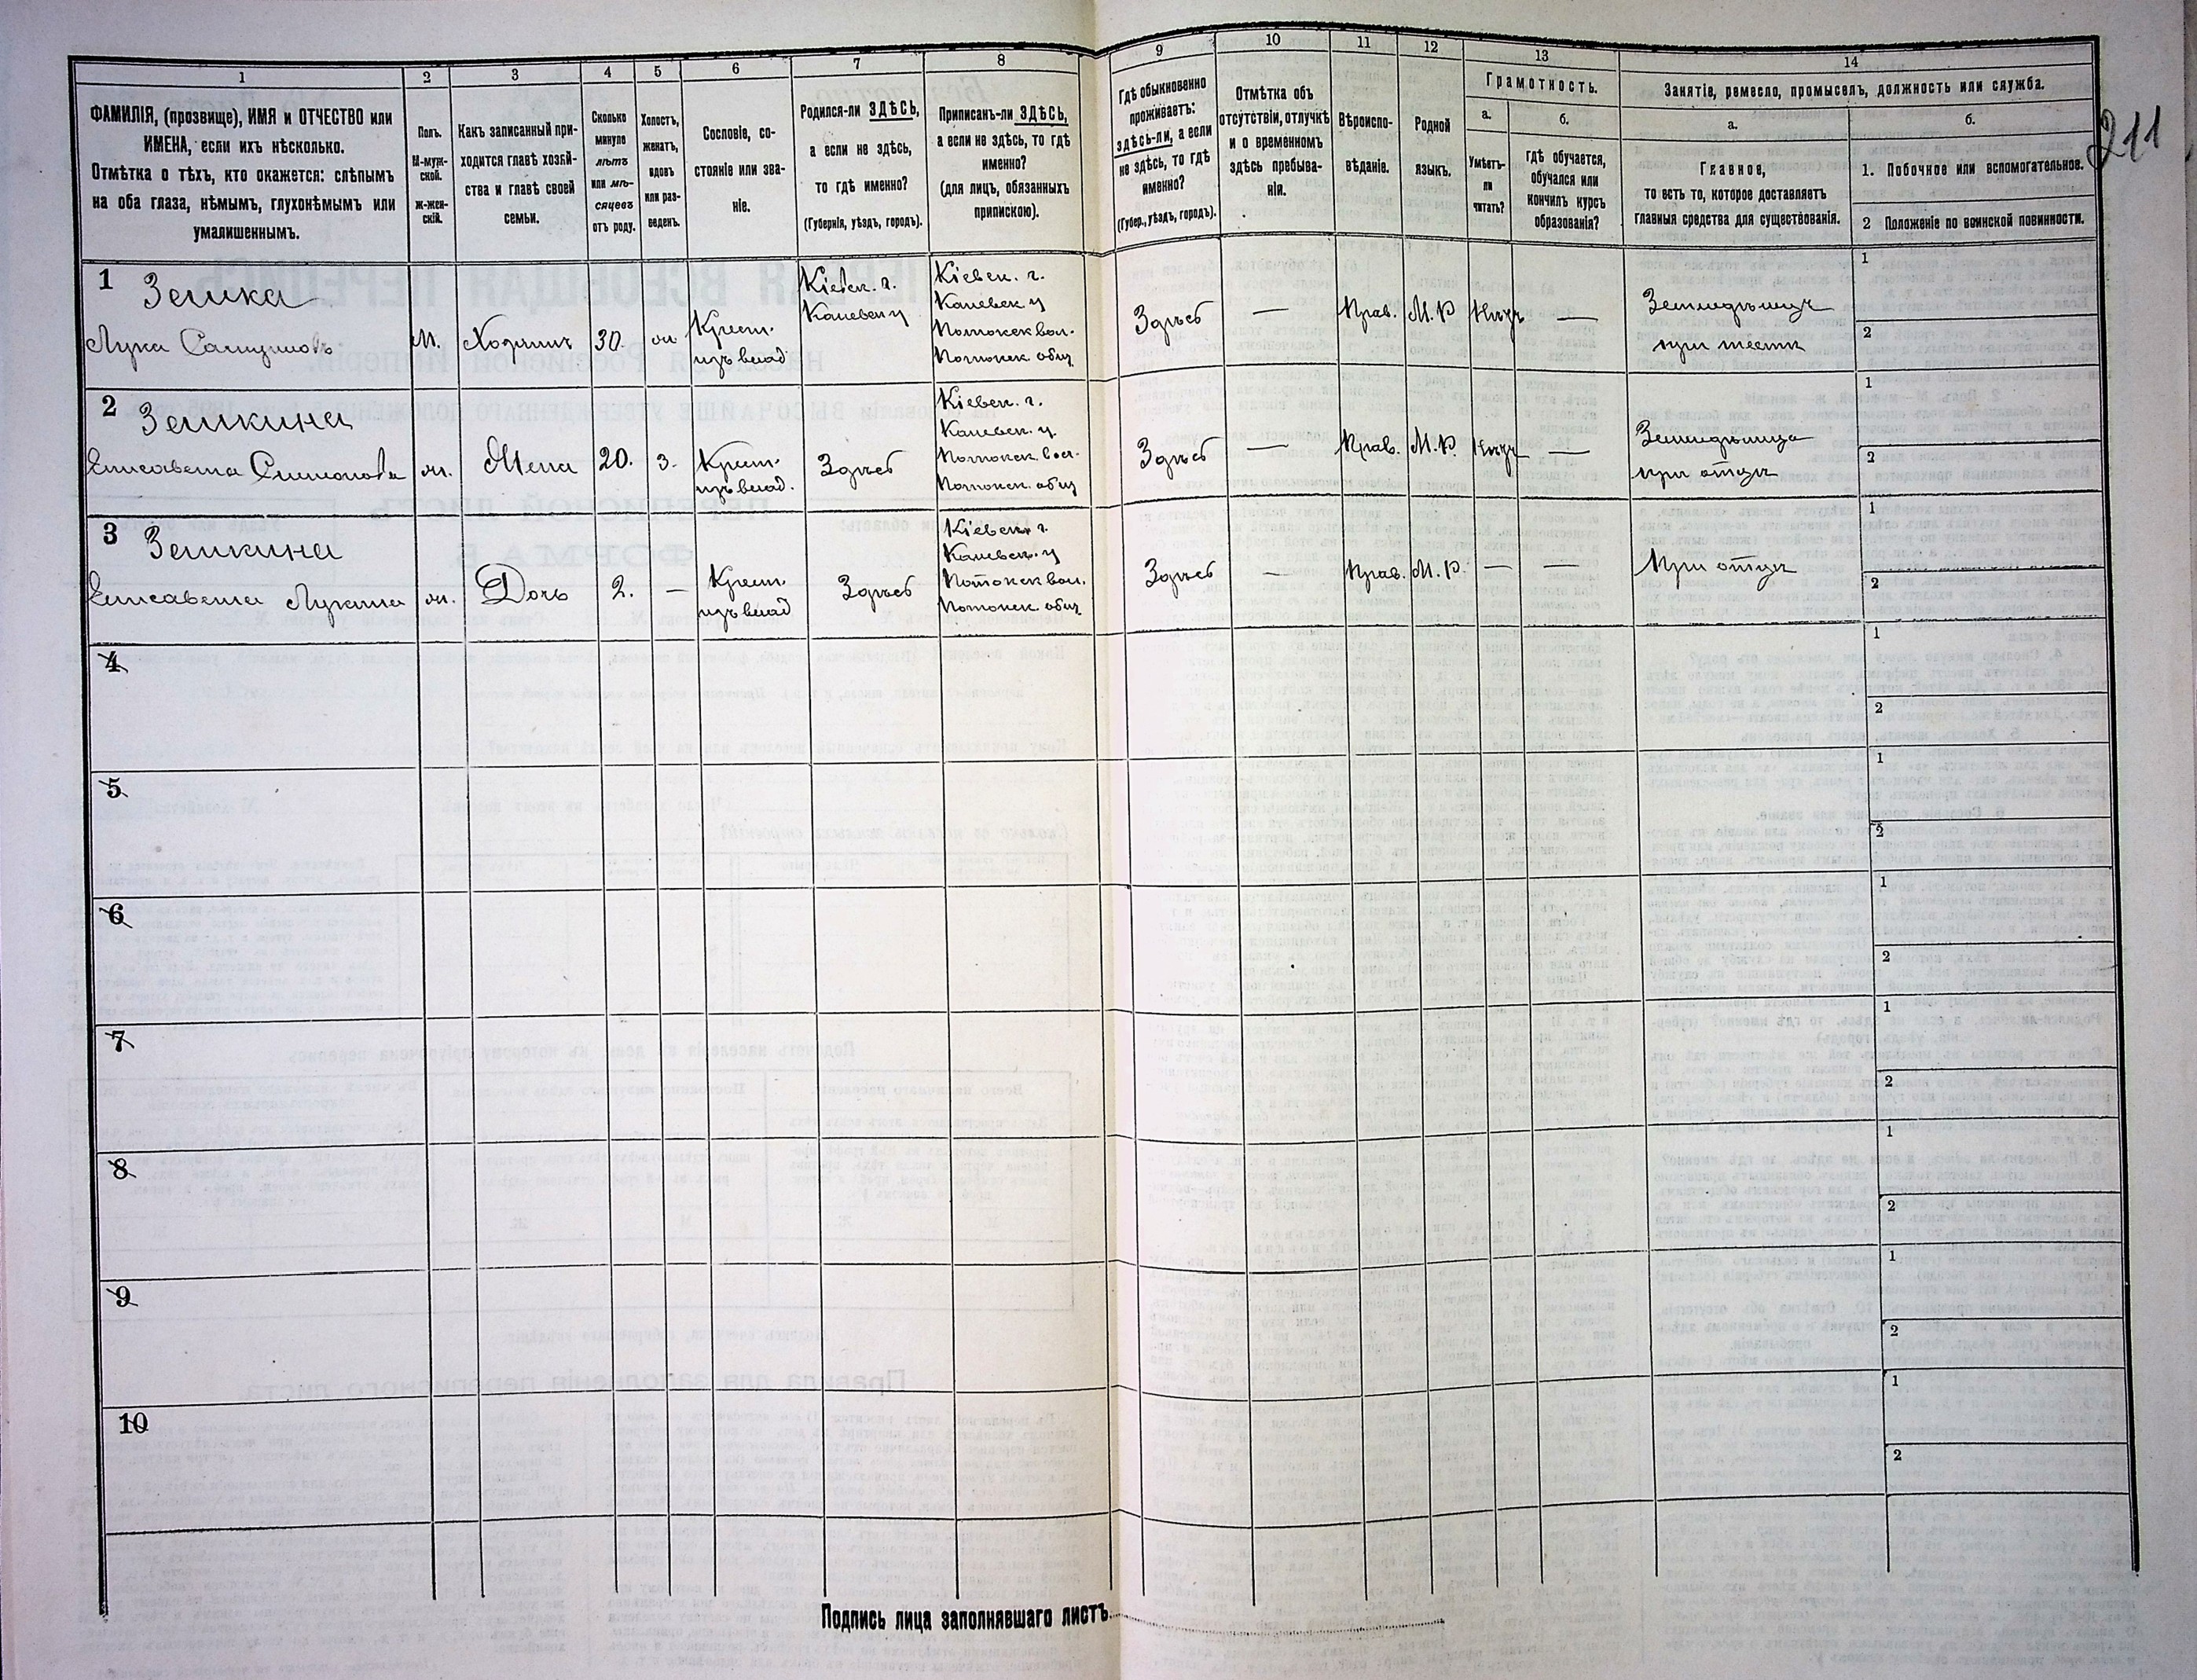 1
2
3
4
5
6
7
8
9
10
11
12
13
14
ФАМИЛІЯ, (прозвище), ИМЯ и ОТЧЕСТВО или
ИМЕНА, если ихъ нѣсколько.
Отмѣтка о тѣхъ, кто окажется: слѣпымъ
на оба глаза, нѣмымъ, глухонѣмымъ или
умалишеннымъ.
Полъ.
М-муж-
ской.
ж-жен-
скій.
Какъ записанный при-
ходится главѣ хозяй-
ства и главѣ своей
семьи.
Сколько
минуло
лѣтъ
или мѣ-
сяцевъ
отъ роду.
Холостъ,
женатъ,
вдовъ
или раз-
веденъ.
Сословіе, со-
стояніе или зва-
ніе.
Родился-ли ЗДѢСЬ,
а если не здѣсь,
то гдѣ именно?
(Губернія, уѣздъ, городъ).
Приписанъ-ли ЗДѢСЬ,
а если не здѣсь, то гдѣ
именно?
(для лицъ, обязанныхъ
припискою).
Гдѣ обыкновенно
проживаетъ:
здѣсь-ли, а если
не здѣсь, то гдѣ
именно?
(Губер., уѣздъ, городъ).
Отмѣтка объ
отсутствіи, отлучкѣ
и о временномъ
здѣсь пребыва-
ніи.
Вѣроиспо-
вѣданіе.
Родной
языкъ.
Грамотность.
а.
б.
Умѣетъ-
ли
читать?
гдѣ обучается,
обучался или
кончилъ курсъ
образованія?
Занятіе, ремесло, промыселъ, должность или служба.
а.
б.
Главное,
то есть то, которое доставляетъ
главныя средства для существованія.
1. Побочное или вспомогательное.
2 Положеніе по воинской повинности.
211
1 Зешка
Лука
М.
30.
Крест.
изъ влад
Кіевск. г.
Каневск у
Кіевск. г.
Каневск у
Потокск вол.
Потокск. общ
Здѣсь
—
Прав.
М. Р.
Нѣтъ
—
Земледѣлецъ
при тестѣ
1
2
2 Зешкина
Елисавета Симонова
ж.
Жена
20.
З.
Крест.
изъ влад.
Здѣсь
Кіевск. г.
Каневск. у.
Потокск. вол.
Потокск. общ
Здѣсь
—
Прав.
М. Р.
Нѣтъ
—
Земледѣлица
при отцѣ
1
2
3 Зешкина
Елисавета Лукина
ж.
Дочь
2.
—
Крест.
изъ влад
Здѣсь
Кіевск. г.
Каневск. у
Потокск вол.
Потокск. общ
Здѣсь
—
Прав.
М. Р.
—
—
При отцѣ
1
2
4
1
2
5
1
2
6
1
2
7
1
2
8
1
2
9
1
2
10
1
2
Подпись лица заполнявшаго листъ